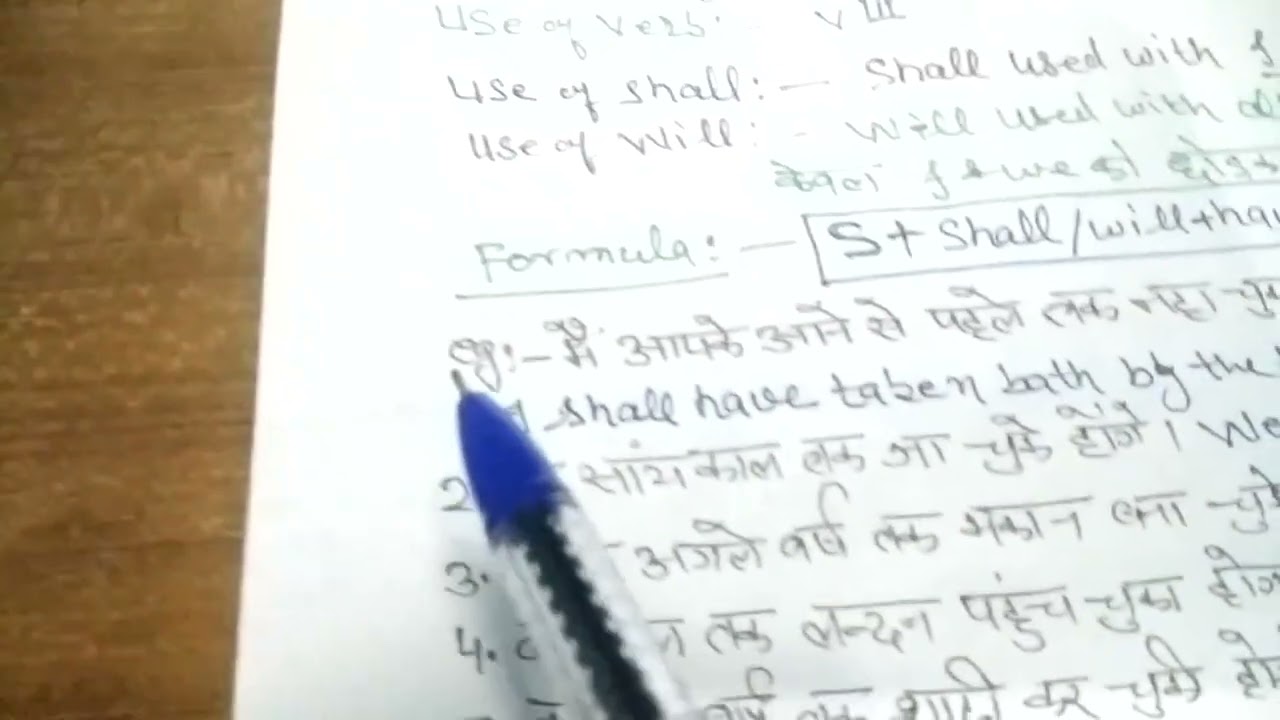 Use of Verb: - V III
Use of shall: - Shall used with I
Use of Will: - Will used with
केवल I & we को छोड़कर
Formula: - S + Shall/will + hav
eg:- मैं आपके आने से पहले तक नहा चुक
I shall have taken bath by the
2. सांयकाल तक आ चुके होंगे। We
3. अगले वर्ष तक मकान बना चुके
4. तक लन्दन पहुंच चुका होग
वर्ष तक शादी कर चुकी हो